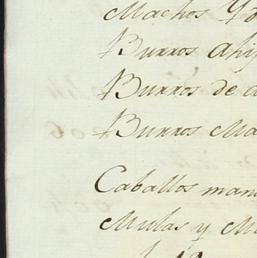 Machos Yo
Burros ahi
Burros de a
Burros Ma
Caballos man
Mulas y M